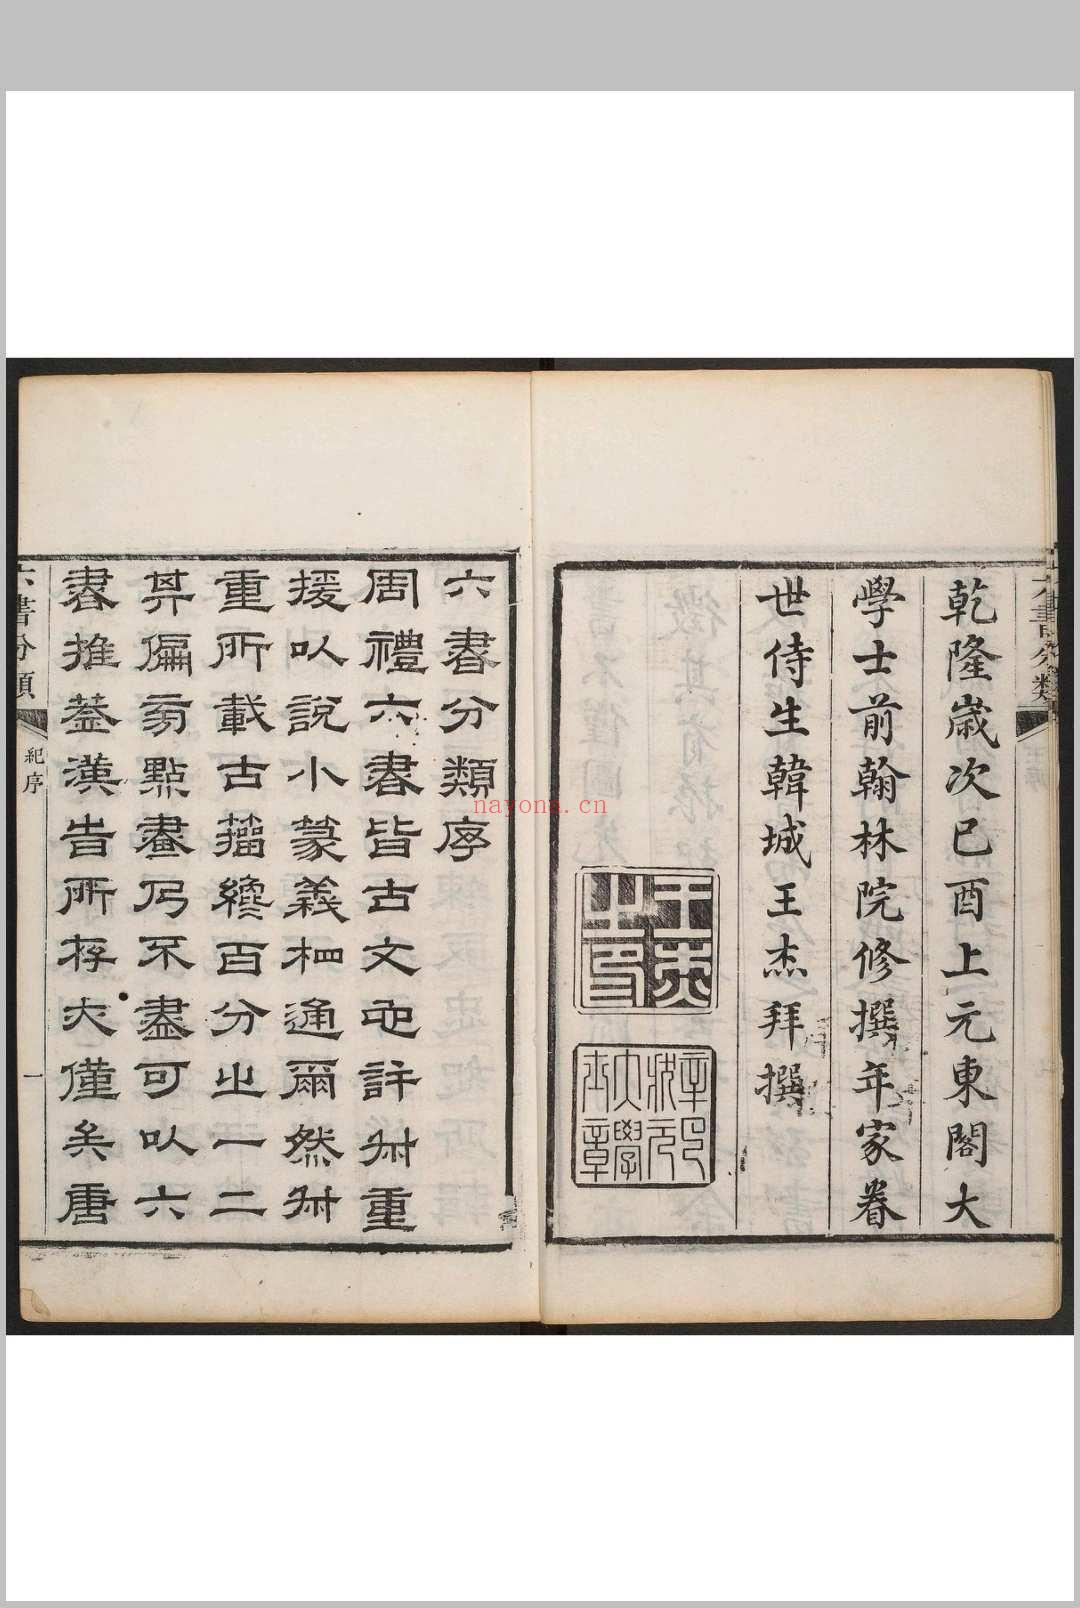 乾隆歲次己酉上元東閣大
學士前翰林院修撰年家眷
世侍生韓城王杰拜撰
王杰之印
六書分類序
周禮六書皆古文也許叔重
援以說小篆義相通爾然叔
重所載古籀纔百分之一二
其偏旁點畫仍不盡可以六
書推蓋漢時所存大僅矣唐
六書分類
紀序
一
nayona.cn